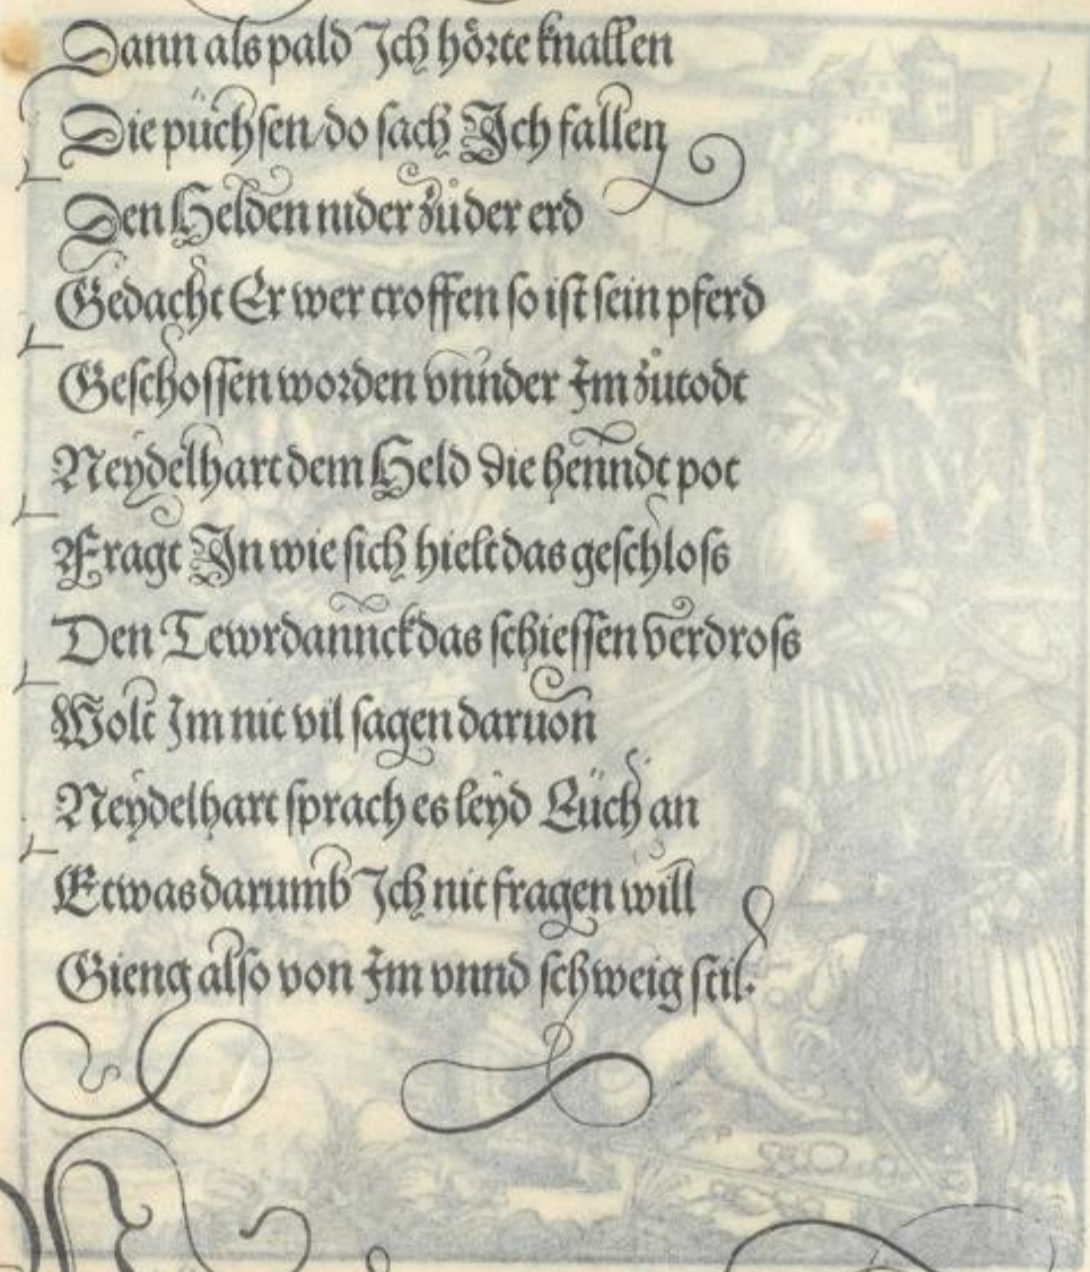 Dann als pald Ich hörte knallen
Die püchsen/do sach Ich fallen
Den Helden nider zůder erd
Gedacht Er wer troffen so ist sein pferd
Geschossen worden vnnder Im zůtodt
Neydelhart dem Held die henndt pot
Fragt In wie sich hielt das geschloss
Den Tewrdannck das schiessen verdross
Wolt Im nit vil sagen daruon
Neydelhart sprach es leyd Eüch an
Etwas darumb Ich nit fragen will
Gieng also von Im vnnd schweig stil.